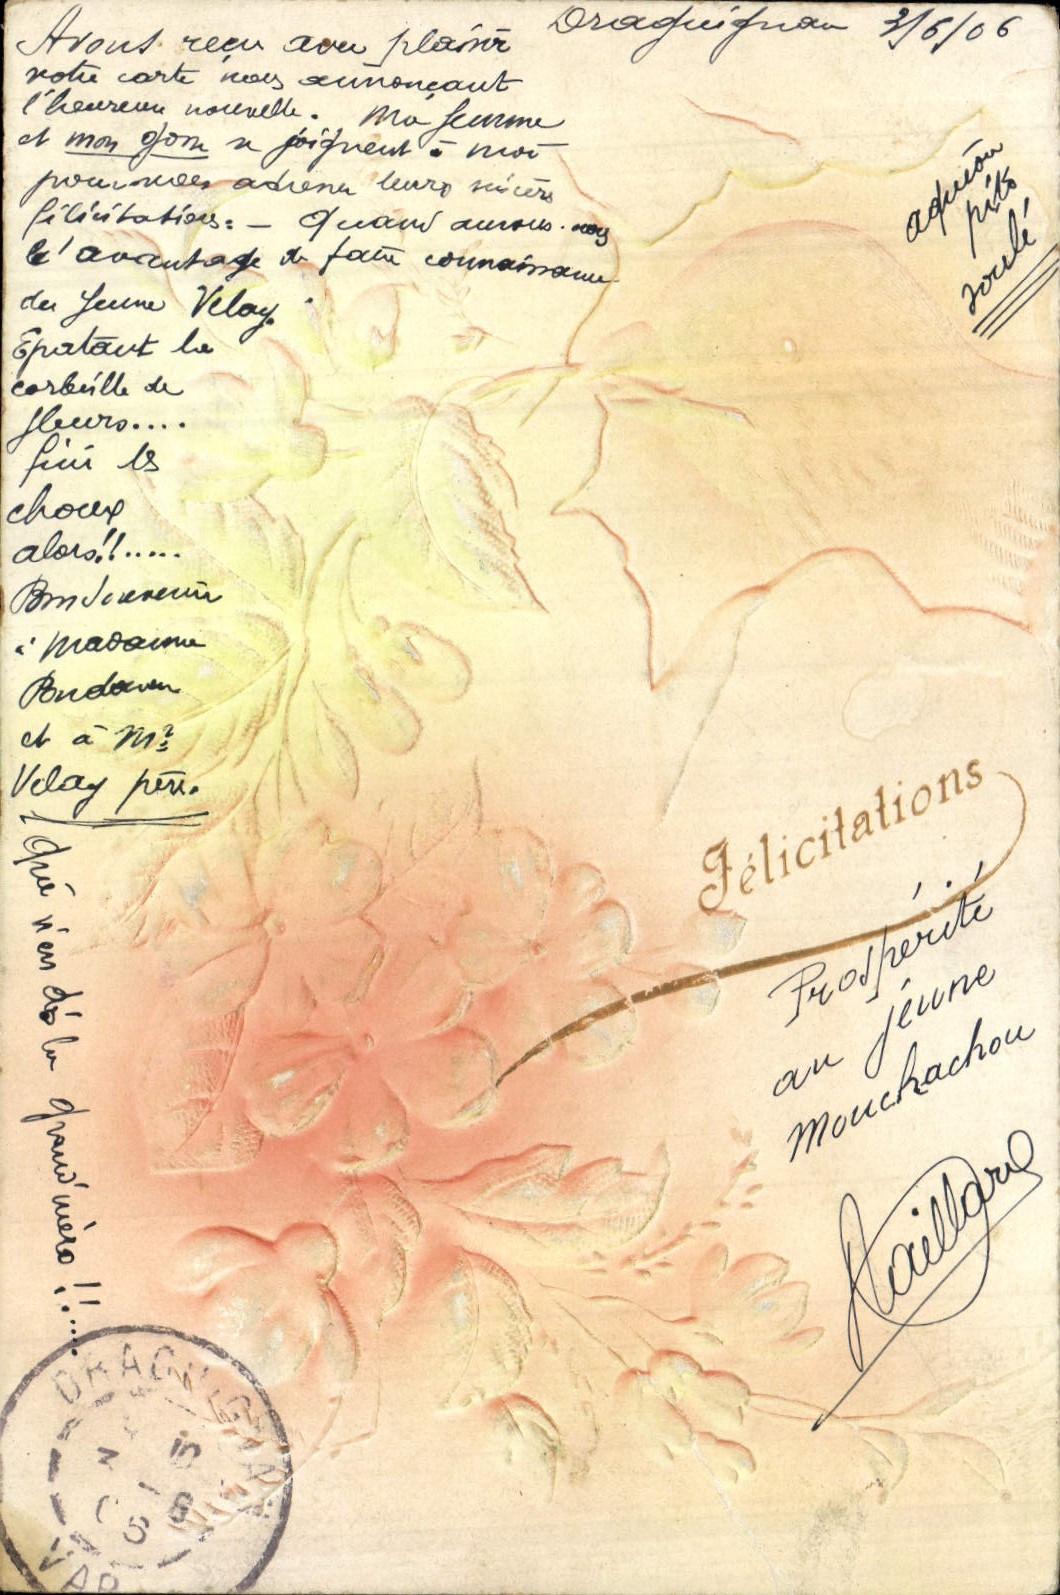 Draguignan 3/6/06
Avons reçu avec plaisir
votre carte nous annonçant
l'heureuse nouvelle. Ma femme
et mon gosse se joignent à moi
pour vous adresser leurs sincères
félicitations. — Quand aurons-nous
l'avantage de faire connaissance
du jeune Velay.
Epatant la
corbeille de
fleurs....
fini les
choux
alors!!.....
Bon souvenir
à Madame
et à Mr
Velay père.
Qué n'en dis la grand'mèro!!....
aquéou
pito
soulé
Félicitations
Prospérité
au jeune
Mouchachou
DRAGUIGNAN
VAR